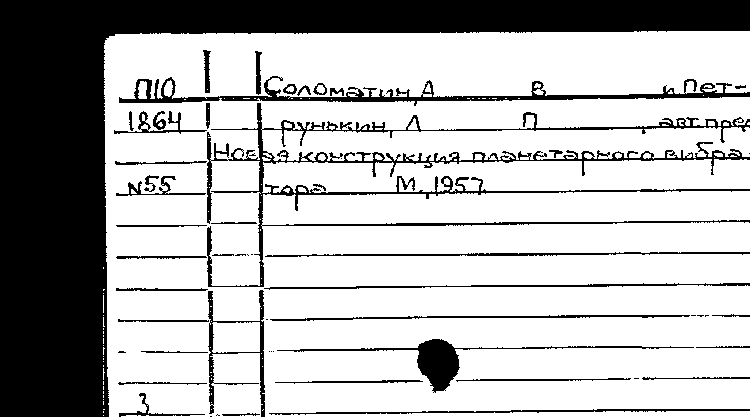 П10 Соломатин, А В и Пет-
1864 рунькин, Л П , авт. пред
Новая конструкция планетарного вибра-
№55 тора М., 1957.
3